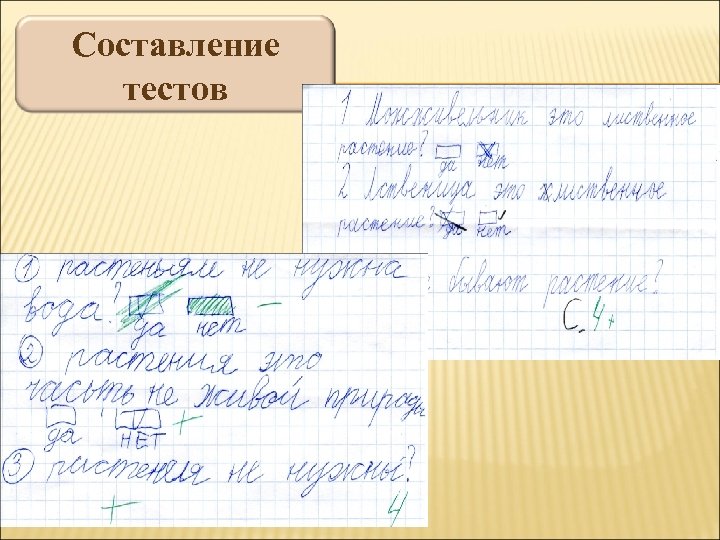 Составление
тестов
1 Можживельник это лиственное
растение?
да нет
2 Лственица это жлиственное
растение?
да нет
бывают растение?
С. 4+
① растеньям не нужна
вода?
да нет −
② растения это
часыть не живой природы
да НЕТ +
③ растения не нужны?
+ 4